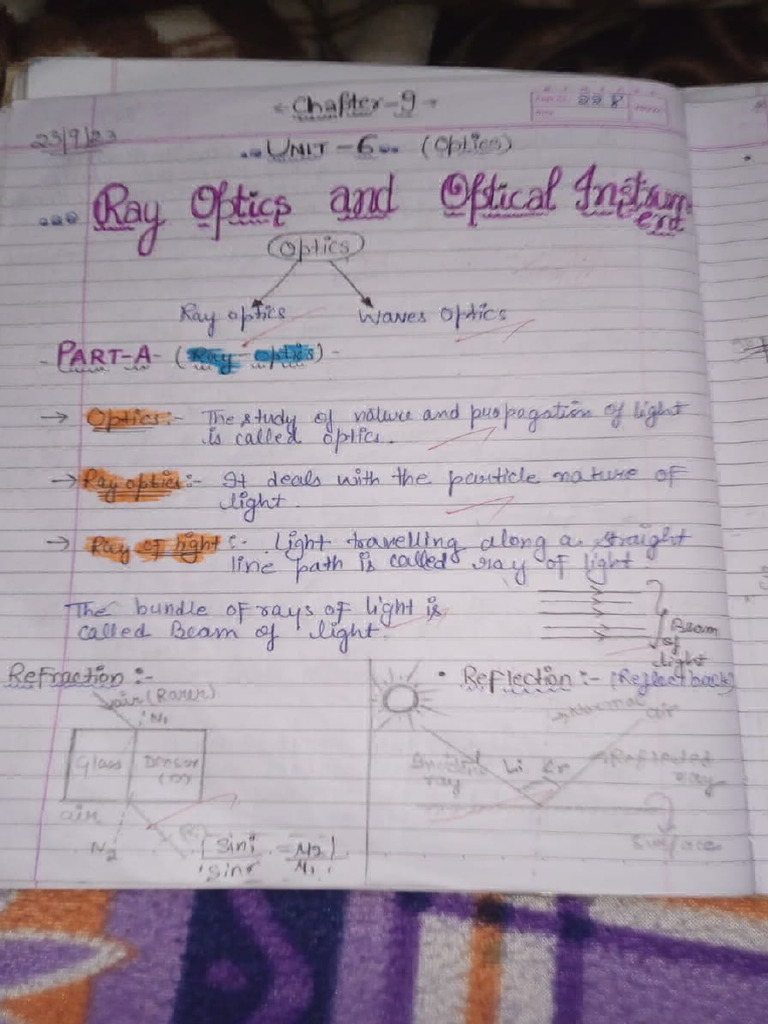 Chapter-9
228
23/9/23
UNIT-6 (Optics)
Ray Optics and Optical Instrum
ent
Optics
Ray optics Waves Optics
- PART-A- (Ray-optics) -
→ Optics:- The study of nature and propagation of light
is called optics.
→ Ray optics:- It deals with the particle nature of
light.
→ Ray of light:- Light travelling along a straight
line path is called ray of light.
The bundle of rays of light is
called Beam of light.
Beam
of
light
Refraction:-
air (Rarer)
N1
Glass Denser
air
N2
sini = μ2
sinr μ1
• Reflection:- (Reflect back)
→ Normal air
Incident ray
∠i ∠r
Reflected ray
Surface